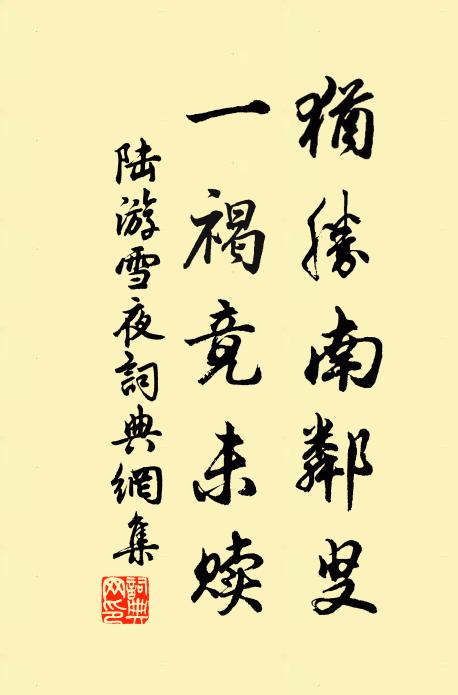 猶勝南鄰叟
一褐竟未贖
陸游雪夜詞典網集
詞典網印